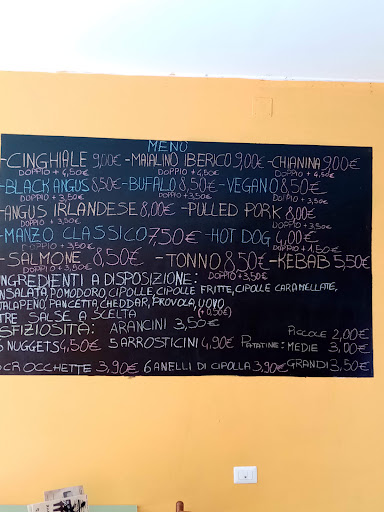 MENÙ
-CINGHIALE 9,00€ -MAIALINO IBERICO 9,00€ -CHIANINA 9,00€
DOPPIO + 4,50€ DOPPIO + 4,50€ DOPPIO + 4,50€
-BLACK ANGUS 8,50€ -BUFALO 8,50€ -VEGANO 8,50€
DOPPIO + 3,50€ DOPPIO + 3,50€ DOPPIO + 3,50€
-ANGUS IRLANDESE 8,00€ -PULLED PORK 8,00€
DOPPIO + 3,50€ DOPPIO + 3,50€
-MANZO CLASSICO 7,50€ -HOT DOG 4,00€
DOPPIO + 3,50€ DOPPIO + 1,50€
-SALMONE 8,50€ -TONNO 8,50€ -KEBAB 5,50€
DOPPIO + 3,50€ DOPPIO + 3,50€
INGREDIENTI A DISPOSIZIONE:
INSALATA, POMODORO, CIPOLLE, CIPOLLE FRITTE, CIPOLLE CARAMELLATE,
JALAPENO, PANCETTA, CHEDDAR, PROVOLA, UOVO
TRE SALSE A SCELTA (+0,50€)
SFIZIOSITÀ: ARANCINI 3,50€ PICCOLE 2,00€
NUGGETS 4,50€ 5 ARROSTICINI 4,90€ PATATINE: MEDIE 3,00€
CROCCHETTE 3,90€ 6 ANELLI DI CIPOLLA 3,90€ GRANDI 3,50€